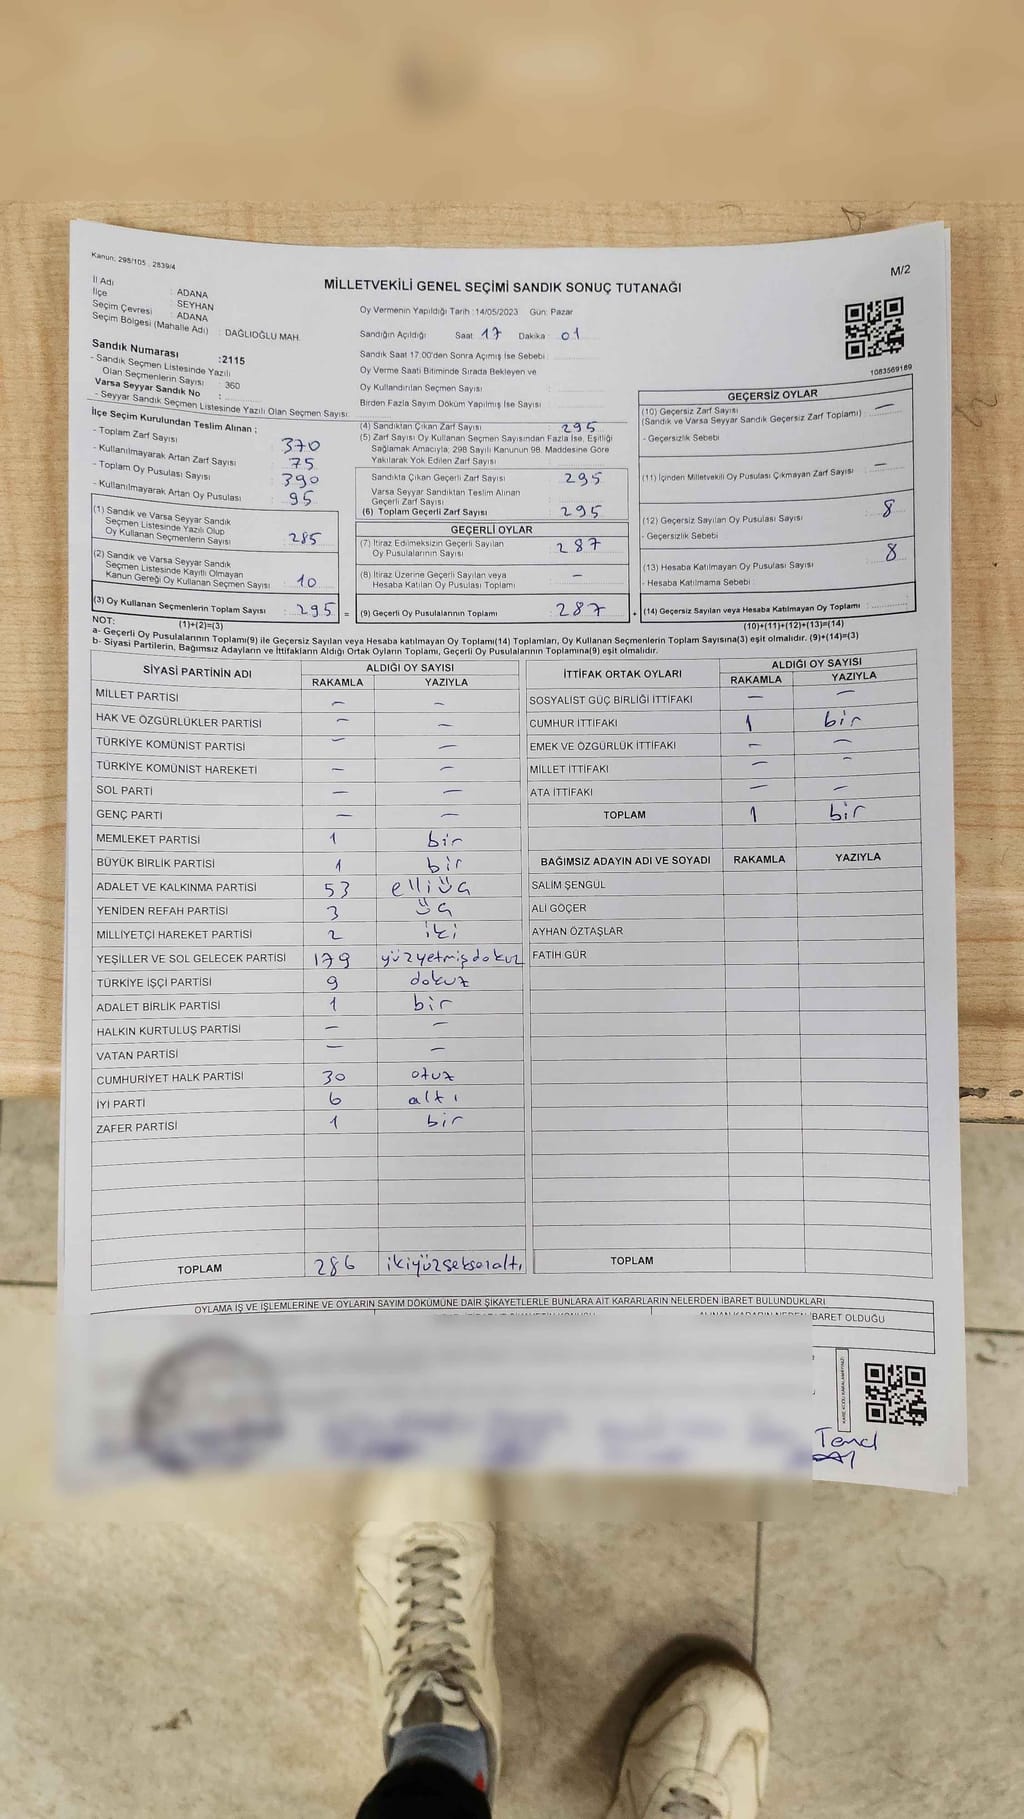 Kanun: 298/105 . 2839/4
M/2
MİLLETVEKİLİ GENEL SEÇİMİ SANDIK SONUÇ TUTANAĞI
İl Adı : ADANA
İlçe : SEYHAN
Seçim Çevresi : ADANA
Seçim Bölgesi (Mahalle Adı) : DAĞLIOĞLU MAH.
Sandık Numarası :2115
- Sandık Seçmen Listesinde Yazılı
Olan Seçmenlerin Sayısı : 360
Varsa Seyyar Sandık No :
- Seyyar Sandık Seçmen Listesinde Yazılı Olan Seçmen Sayısı:
Oy Vermenin Yapıldığı Tarih : 14/05/2023 Gün: Pazar
Sandığın Açıldığı Saat 17 Dakika : 01
Sandık Saat 17:00'den Sonra Açımış İse Sebebi :
Oy Verme Saati Bitiminde Sırada Bekleyen ve
Oy Kullandırılan Seçmen Sayısı :
Birden Fazla Sayım Döküm Yapılmış İse Sayısı :
1083569189
İlçe Seçim Kurulundan Teslim Alınan ;
- Toplam Zarf Sayısı : 370
- Kullanılmayarak Artan Zarf Sayısı : 75
- Toplam Oy Pusulası Sayısı : 390
- Kullanılmayarak Artan Oy Pusulası : 95
(1) Sandık ve Varsa Seyyar Sandık
Seçmen Listesinde Yazılı Olup
Oy Kullanan Seçmenlerin Sayısı : 285
(2) Sandık ve Varsa Seyyar Sandık
Seçmen Listesinde Kayıtlı Olmayan
Kanun Gereği Oy Kullanan Seçmen Sayısı : 10
(3) Oy Kullanan Seçmenlerin Toplam Sayısı : 295 =
(1)+(2)=(3)
(4) Sandıktan Çıkan Zarf Sayısı : 295
(5) Zarf Sayısı Oy Kullanan Seçmen Sayısından Fazla İse, Eşitliği
Sağlamak Amacıyla; 298 Sayılı Kanunun 98. Maddesine Göre
Yakılarak Yok Edilen Zarf Sayısı :
Sandıkta Çıkan Geçerli Zarf Sayısı : 295
Varsa Seyyar Sandıktan Teslim Alınan
Geçerli Zarf Sayısı :
(6) Toplam Geçerli Zarf Sayısı : 295
GEÇERLİ OYLAR
(7) İtiraz Edilmeksizin Geçerli Sayılan
Oy Pusulalarının Sayısı : 287
(8) İtiraz Üzerine Geçerli Sayılan veya
Hesaba Katılan Oy Pusulası Toplamı : –
(9) Geçerli Oy Pusulalarının Toplamı : 287 +
GEÇERSİZ OYLAR
(10) Geçersiz Zarf Sayısı : –
(Sandık ve Varsa Seyyar Sandık Geçersiz Zarf Toplamı)
- Geçersizlik Sebebi
(11) İçinden Milletvekili Oy Pusulası Çıkmayan Zarf Sayısı : –
(12) Geçersiz Sayılan Oy Pusulası Sayısı : 8
- Geçersizlik Sebebi
(13) Hesaba Katılmayan Oy Pusulası Sayısı : 8
- Hesaba Katılmama Sebebi
(14) Geçersiz Sayılan veya Hesaba Katılmayan Oy Toplamı :
(10)+(11)+(12)+(13)=(14)
NOT:
a- Geçerli Oy Pusulalarının Toplamı(9) ile Geçersiz Sayılan veya Hesaba katılmayan Oy Toplamı(14) Toplamları, Oy Kullanan Seçmenlerin Toplam Sayısına(3) eşit olmalıdır. (9)+(14)=(3)
b- Siyasi Partilerin, Bağımsız Adayların ve İttifakların Aldığı Ortak Oyların Toplamı, Geçerli Oy Pusulalarının Toplamına(9) eşit olmalıdır.
SİYASİ PARTİNİN ADI ALDIĞI OY SAYISI
RAKAMLA YAZIYLA
MİLLET PARTİSİ – –
HAK VE ÖZGÜRLÜKLER PARTİSİ – –
TÜRKİYE KOMÜNİST PARTİSİ – –
TÜRKİYE KOMÜNİST HAREKETİ – –
SOL PARTİ – –
GENÇ PARTİ – –
MEMLEKET PARTİSİ 1 bir
BÜYÜK BİRLİK PARTİSİ 1 bir
ADALET VE KALKINMA PARTİSİ 53 elliüç
YENİDEN REFAH PARTİSİ 3 üç
MİLLİYETÇİ HAREKET PARTİSİ 2 iki
YEŞİLLER VE SOL GELECEK PARTİSİ 179 yüzyetmişdokuz
TÜRKİYE İŞÇİ PARTİSİ 9 dokuz
ADALET BİRLİK PARTİSİ 1 bir
HALKIN KURTULUŞ PARTİSİ – –
VATAN PARTİSİ – –
CUMHURİYET HALK PARTİSİ 30 otuz
İYİ PARTİ 6 altı
ZAFER PARTİSİ 1 bir
TOPLAM 286 ikiyüzseksenaltı
İTTİFAK ORTAK OYLARI ALDIĞI OY SAYISI
RAKAMLA YAZIYLA
SOSYALİST GÜÇ BİRLİĞİ İTTİFAKI – –
CUMHUR İTTİFAKI 1 bir
EMEK VE ÖZGÜRLÜK İTTİFAKI – –
MİLLET İTTİFAKI – –
ATA İTTİFAKI – –
TOPLAM 1 bir
BAĞIMSIZ ADAYIN ADI VE SOYADI RAKAMLA YAZIYLA
SALİM ŞENGÜL
ALİ GÖÇER
AYHAN ÖZTAŞLAR
FATİH GÜR
TOPLAM
OYLAMA İŞ VE İŞLEMLERİNE VE OYLARIN SAYIM DÖKÜMÜNE DAİR ŞİKAYETLERLE BUNLARA AİT KARARLARIN NELERDEN İBARET BULUNDUKLARI
İBARET OLDUĞU